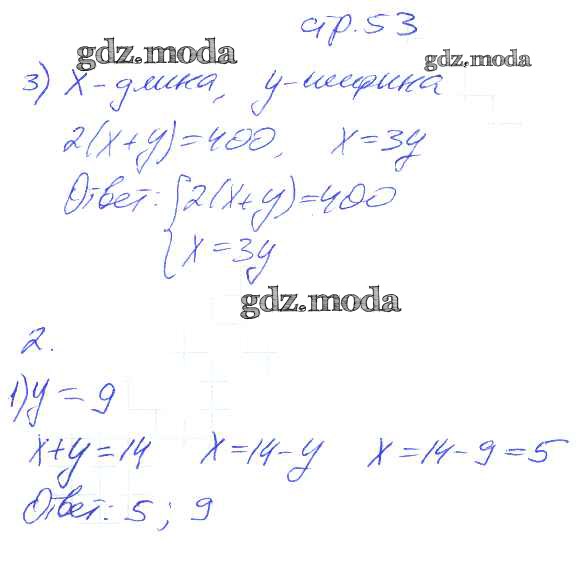 стр.53
gdz.moda gdz.moda
3) x - длина, y - ширина
2(x+y)=400, x=3y
Ответ: { 2(x+y)=400
x=3y
gdz.moda
2.
1) y = 9
x+y=14 x=14-y x=14-9=5
Ответ: 5; 9